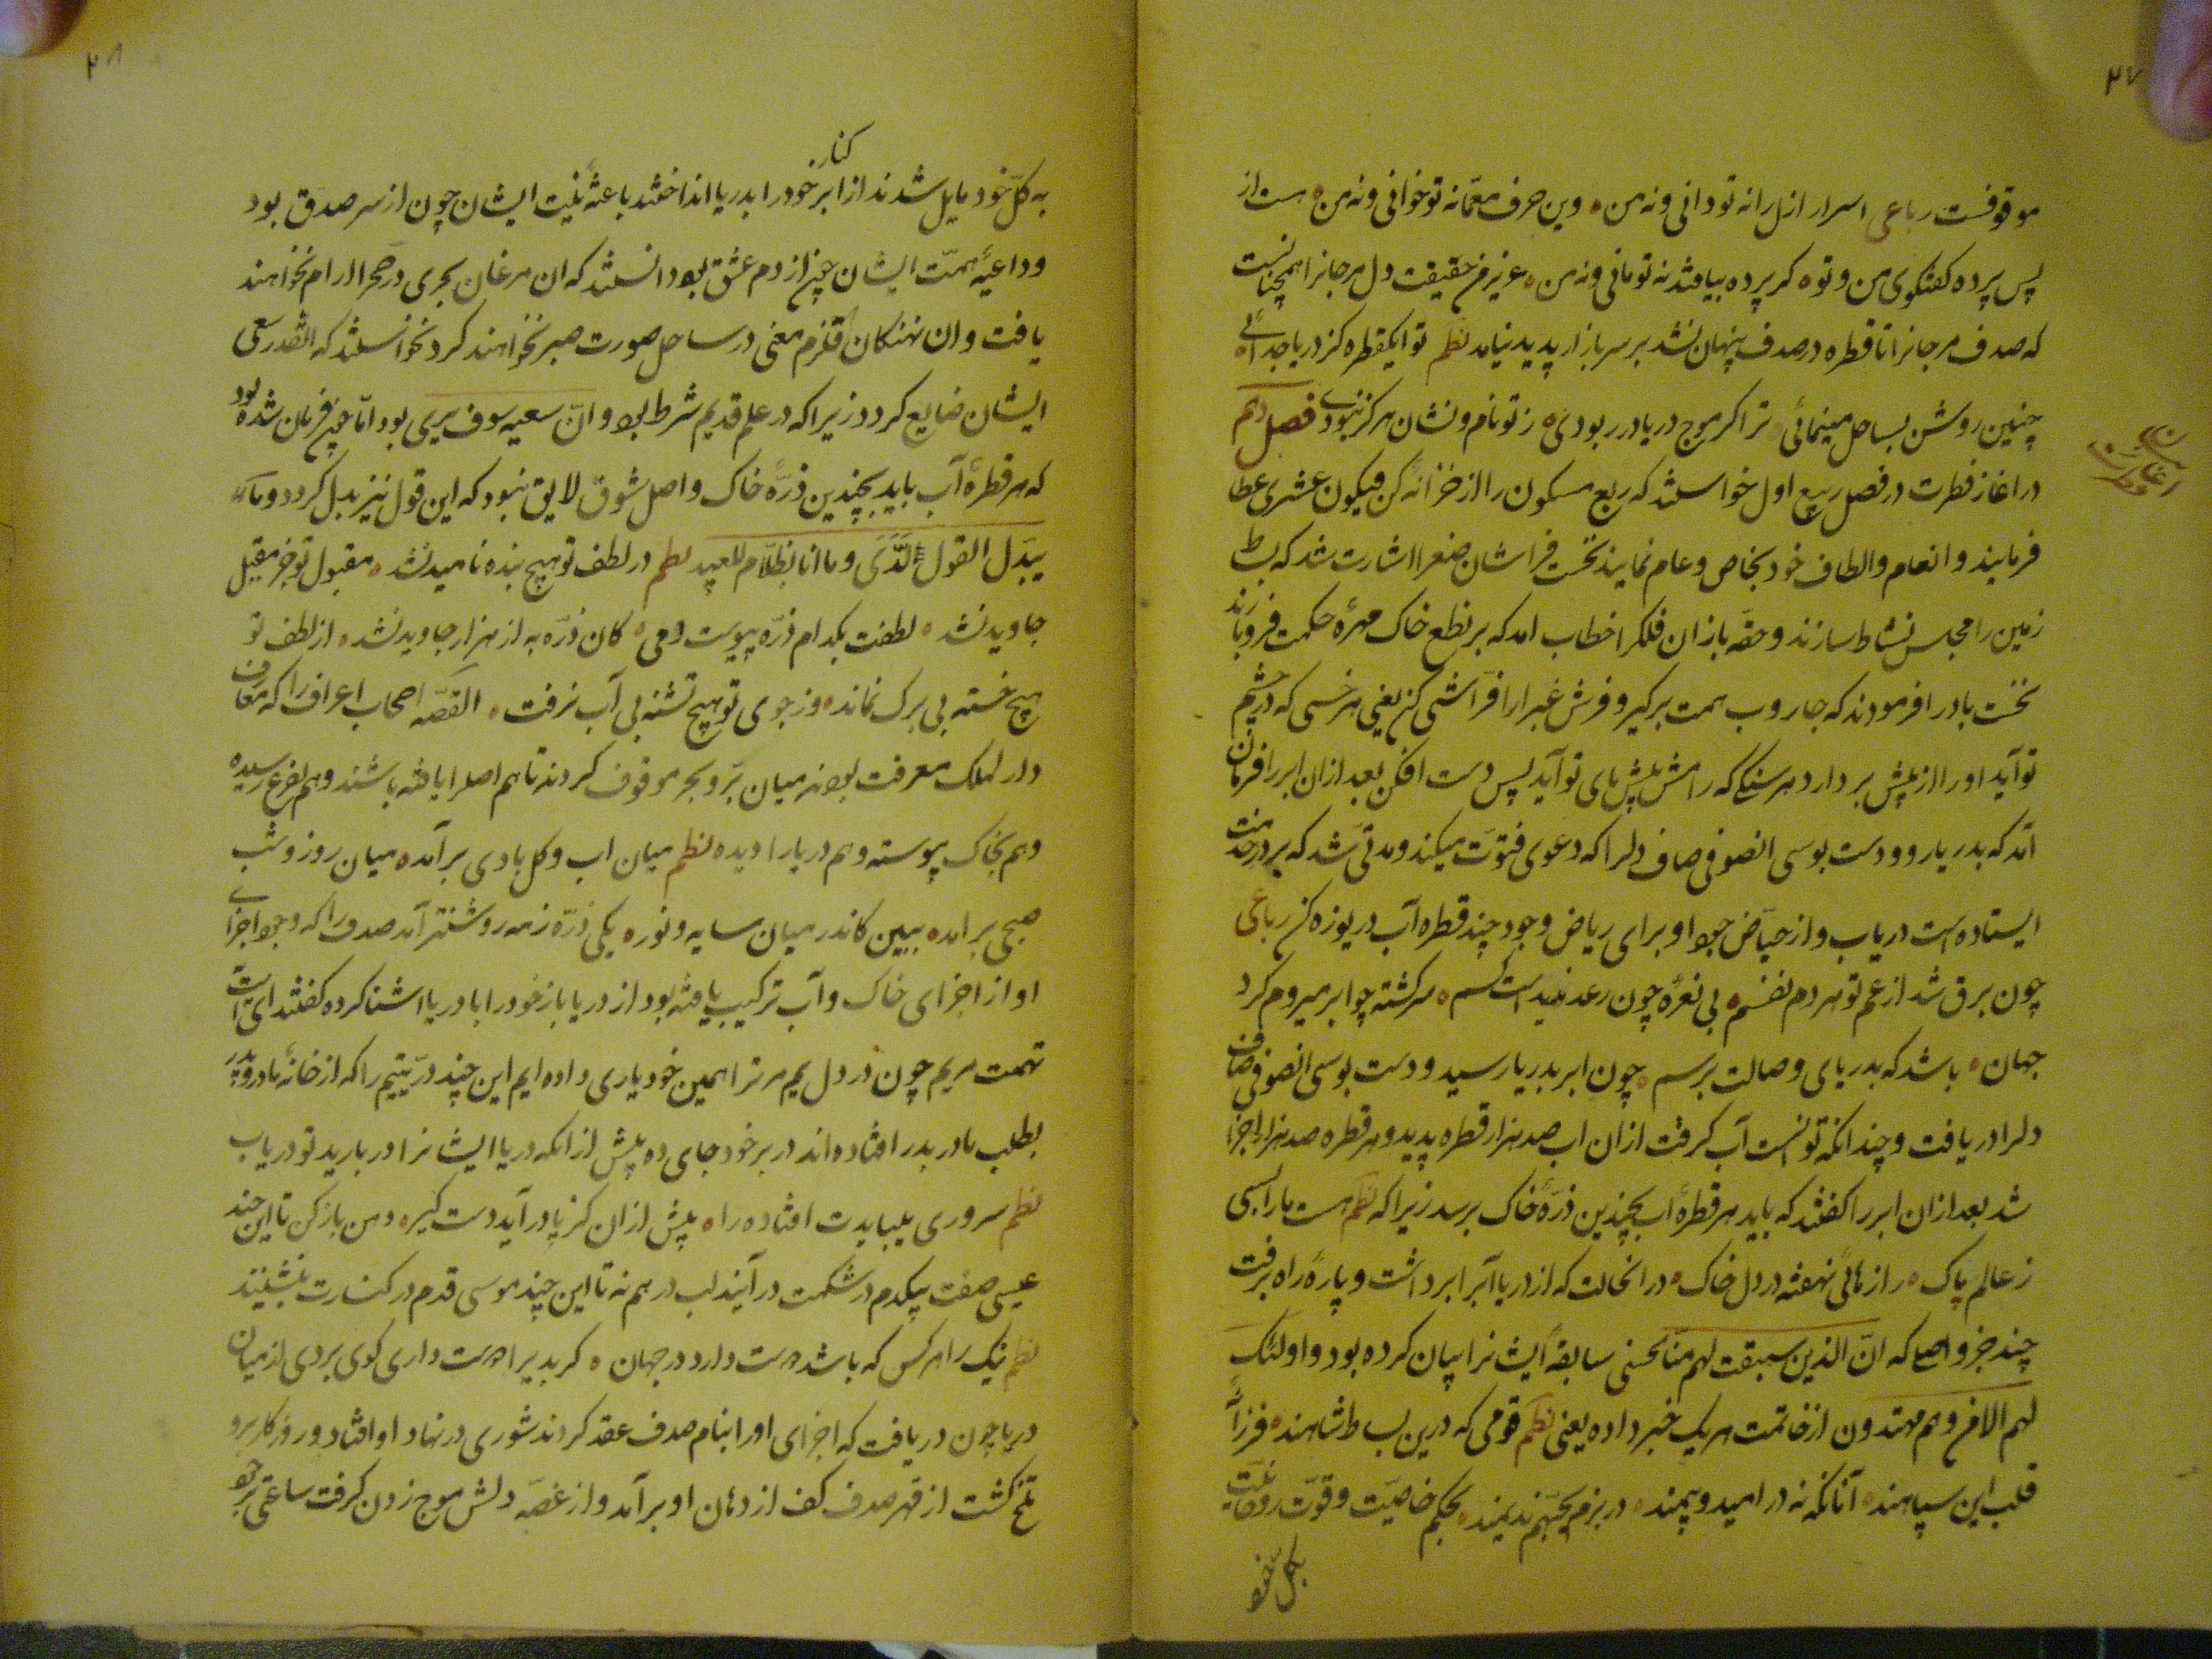 ۲۷
موقوفست رباعی اسرار ازل را نه تو دانی و نه من وین حرف معمّا نه تو خوانی و نه من هست از
پس پرده کفتکوی من و تو کر پرده بیافتد نه تو مانی و نه من عزیز من حقیقت دل مرجانرا همچنانست
که صدف مرجانرا تا قطره در صدف پنهان نشد بر سر بازار پدید نیامد نظم تو ایکقطره کز دریا جدائے
چنین روشن بساحل مینمائی ترا اکر موج دریا در ربودی ز تو نام و نشان هرکز نبودے فصل دهم
در اغاز فطرت در فصل ربیع اول خواستند که ربع مسکون را از خزانهٔ کن فیکون عشری عطا
فرمایند و انعام و الطاف خود بخاص و عام نمایند نخست فراشان صنعرا اشارت شد که بسط
زمین را مجلس نشاط سازند و حقّه بازان فلکرا خطاب امد که بر نطع خاک مهرهٔ حکمت فرو بازند
نخست باد را فرمودند که جاروب همت برکیر و فرش غبرا را فرّاشی کن یعنی هر خسی که در چشم
تو آید او را از پیش بردار و هر سنکے که رامش پیش پای تو آید پس دست افکن بعد ازان ابر را فرمان
آمد که بدریا رو و دست بوسی انصوفی صاف دلرا که دعوی فتوّت میکند و مدتی شد که بر در خدمت
ایستاده است دریاب و از حیاض جود او برای ریاض وجود چند قطره آب دریوزه کن رباعی
چون برق شد از غم تو هر دم نفسم بی نعره چون رعد نیست کسم سرکشته چو ابر میروم کرد
جهان باشد که بدریای وصالت برسم چون ابر بدریا رسید و دست بوسی انصوفی صاف
دلرا دریافت و چندانکه توانست آب کرفت ازان اب صد هزار قطره پدید و هر قطره صد هزار اجزا
شد بعد ازان ابر را کفتند که باید هر قطرهٔ اب بچندین ذرّهٔ خاک برسد زیرا که نظم هست ما را بسی
ز عالم پاک رازهائی نهفته در دل خاک در انحالت که از دریا آبرا برداشت و پارهٔ راه برفت
چند جزو اصلے که انّ الذین سبقت لهم منّا الحسنی سابقهٔ ایشانرا بیان کرده بود و اولئک
لهم الامن و هم مهتدون از خاتمت هر یک خبر داده یعنی نظم قومی که درین بساط شاهند فرزانهٔ
قلب این سپاهند آنانکه نه در امید و بیمند در بزم یحبّهم ندیمند بحکم خاصیّت و قوّت روحانیّت
بکل خود
۲۸
به کلّ خود مایل شدند از کنار ابر خود را بدریا انداختند باعثهٔ نیت ایشان چون از سر صدق بود
و داعیهٔ همّت ایشان چون از دم عشق بود دانستند که ان مرغان بحری در صحرا ارام نخواهند
یافت و ان نهنکان قلزم معنی در ساحل صورت صبر نخواهند کرد نخواستند که انقدر سعی
ایشان ضایع کردد زیرا که در علم قدیم شرط بود و انّ سعیه سوف یری بود امّا چون فرمان شده بود
که هر قطرهٔ آب باید بچندین ذرّهٔ خاک واصل شود لایق نبود که این قول نیز بدل کردد و ما
یبدّل القول لَدَیَّ و ما انا بظلّام للعبید نظم در لطف تو هیچ بنده نامید نشد مقبول تو جز مقبل
جاوید نشد لطفت بکدام ذرّه پیوست دمی کان ذرّه به از هزار جاوید نشد از لطف تو
هیچ خسته بی برک نماند وز جوی تو هیچ تشنه بی آب نرفت القصّه اصحاب اعراف را که معارف
دار الملک معرفت بودند میان برّ و بحر موقوف کردند تا هم اصلرا یافته باشند و هم بفرع رسیده
و هم بخاک پیوسته و هم دریا را دیده نظم میان اب و کل بادی برآمده میان روز و شب
صبحی برامده ببین کاندر میان سایه و نور یکی ذرّه ز مه روشنتر آمد صدف را که وجود اجزاے
او از اجزای خاک و آب ترکیب یافته بود از دریا باز خود را با دریا اشنا کرده کفتند ای
تهمت مریم چون در دل یم مر ترا همین خود یاری داده ایم این چند درّ یتیم را که از خانهٔ مادر و پدر
بطلب مادر بدر افتاده اند در بر خود جای ده پیش ازانکه دریا ایشانرا در باید تو دریاب
نظم سروری میبایدت افتاده را پیش ازان کز پا درآید دست کیر دهن باز کن تا این چند
عیسی صفت یکدم در شکمت درآیند لب در هم نه تا این چند موسی قدم در کنارت بنشینند
نظم نیک را هر کس که باشد دوست دارد در جهان کر بدیرا دوست داری کوی بردی از میان
دریا چون دریافت که اجزای او را بنام صدف عقد کردند شوری در نهاد او افتاد و روزکار برو
تلخ کشت از قهر صدف کف از دهان او برآمد و از غصّه دلش موج زدن کرفت ساعتی بر خود